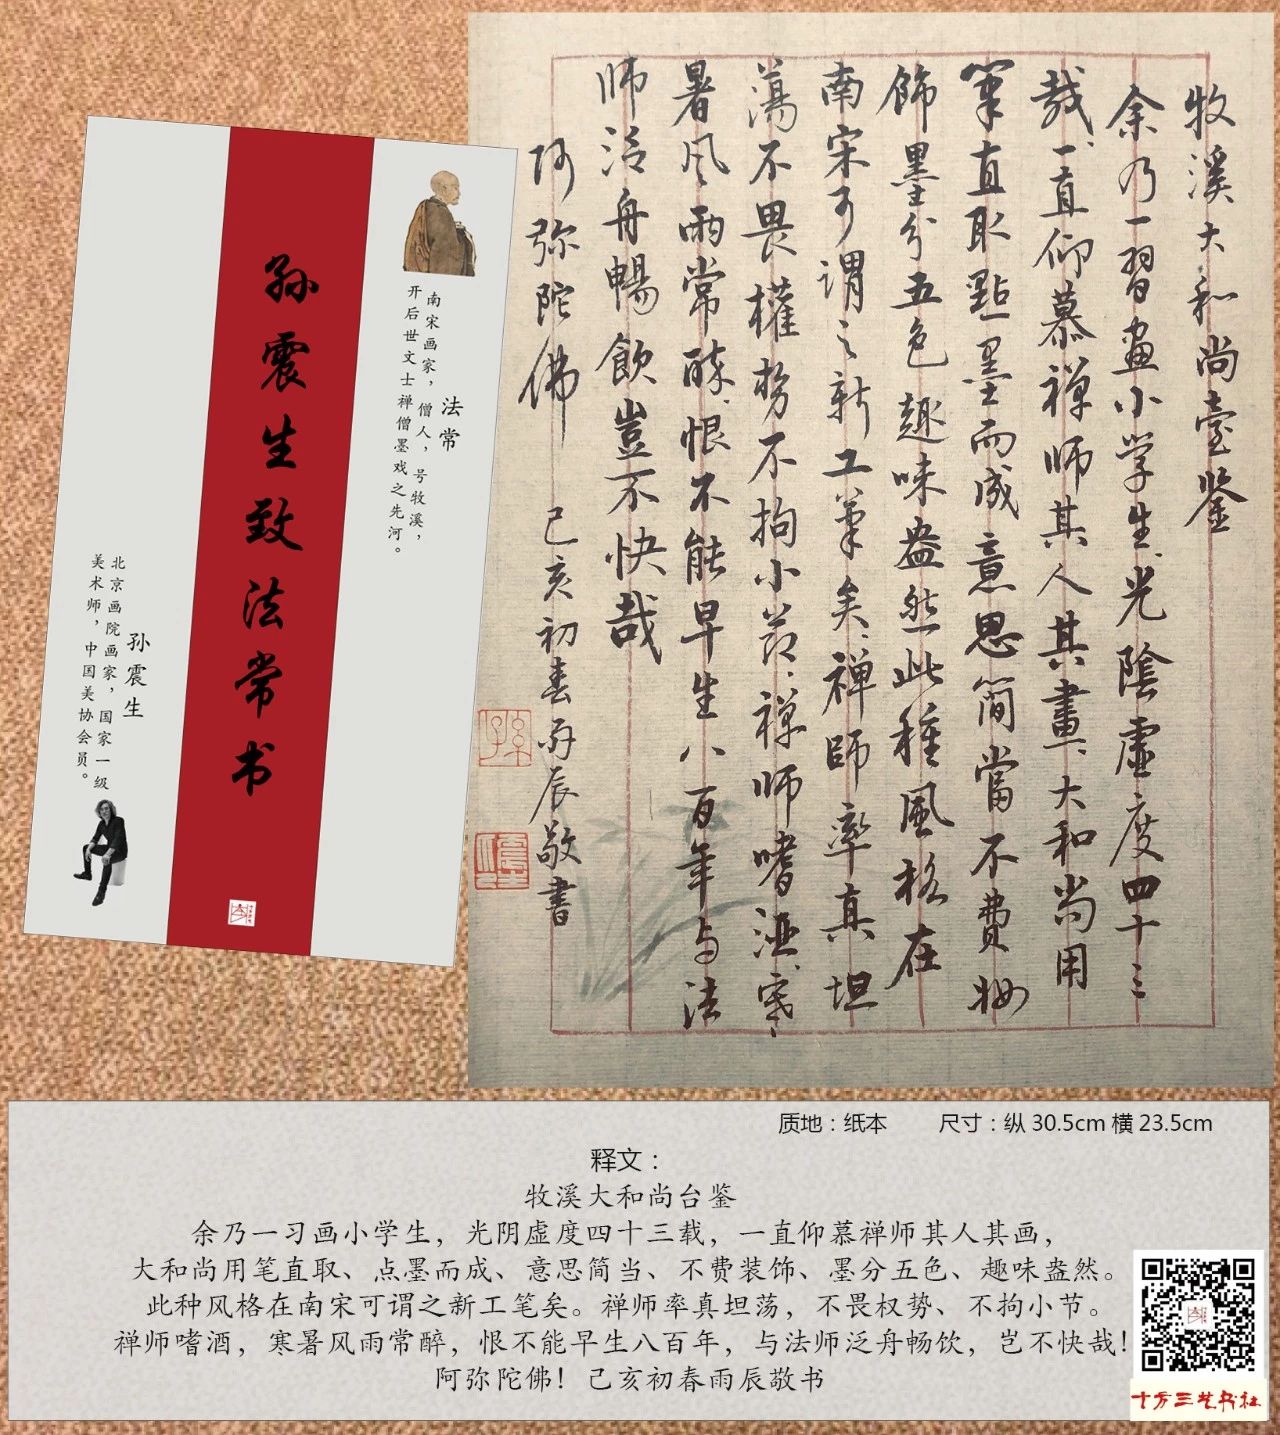 牧溪大和尚臺鉴
余乃一習畫小学生光陰虛度四十三
哉一直仰慕禅师其人其畫大和尚用
筆直取點墨而成意思簡當不費妝
飾墨分五色趣味盎然此種風格在
南宋可謂之新工筆矣禅師率真坦
蕩不畏權势不拘小节禅师嗜酒寒
暑风雨常醉恨不能早生八百年与法
师泛舟暢飲豈不快哉
阿弥陀佛 己亥初春雨辰敬書
法常
南宋画家，僧人，号牧溪，
开后世文士禅僧墨戏之先河。
孙震生致法常书
孙震生
北京画院画家，国家一级
美术师，中国美协会员。
质地：纸本 尺寸：纵 30.5cm 横 23.5cm
释文：
牧溪大和尚台鉴
余乃一习画小学生，光阴虚度四十三载，一直仰慕禅师其人其画，
大和尚用笔直取、点墨而成、意思简当、不费装饰、墨分五色、趣味盎然。
此种风格在南宋可谓之新工笔矣。禅师率真坦荡，不畏权势、不拘小节。
禅师嗜酒，寒暑风雨常醉，恨不能早生八百年，与法师泛舟畅饮，岂不快哉！
阿弥陀佛！己亥初春雨辰敬书
十方三艺书社